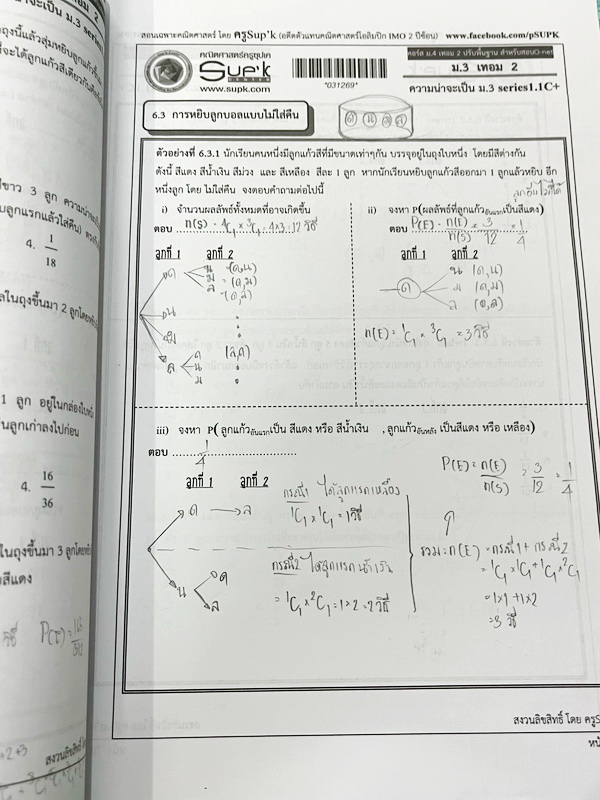 สอนเฉพาะคณิตศาสตร์ โดย ครูSup'k (อดีตตัวแทนคณิตศาสตร์โอลิมปิก IMO 2 ปีซ้อน) www.facebook.com/pSUPK
คณิตศาสตร์ครูซุปเค
Sup'k
CENTER
www.supk.com
*031269*
คอร์ส ม.4 เทอม 2 ปรับพื้นฐาน สำหรับสอบO-net
ม.3 เทอม 2
ความน่าจะเป็น ม.3 series1.1C+
6.3 การหยิบลูกบอลแบบไม่ใส่คืน
ด น ม ล
ตัวอย่างที่ 6.3.1 นักเรียนคนหนึ่งมีลูกแก้วสีที่มีขนาดเท่าๆกัน บรรจุอยู่ในถุงใบหนึ่ง โดยมีสีต่างกัน
ดังนี้ สีแดง สีน้ำเงิน สีม่วง และ สีเหลือง สีละ 1 ลูก หากนักเรียนหยิบลูกแก้วสีออกมา 1 ลูกแล้วหยิบ อีก
หนึ่งลูก โดย ไม่ใส่คืน จงตอบคำถามต่อไปนี้
i) จำนวนผลลัพธ์ทั้งหมดที่อาจเกิดขึ้น
ตอบ n(S) = 4C1 × 3C1 = 4×3 = 12 วิธี
ลูกที่ 1 ลูกที่ 2
ด น (ด,น)
ม (ด,ม)
ล (ด,ล)
น
ม
ล ด (ล,ด)
น
ม
ii) จงหา P(ผลลัพธ์ที่ลูกแก้วอันแรกเป็นสีแดง)
ตอบ P(E) = n(E)/n(S) = 3/12 = 1/4
ลูกที่ 1 ลูกที่ 2
ด น (ด,น)
ม (ด,ม)
ล (ด,ล)
n(E) = 1C1 × 3C1 = 3 วิธี
iii) จงหา P( ลูกแก้วอันแรกเป็น สีแดง หรือ สีน้ำเงิน , ลูกแก้วอันหลัง เป็นสีแดง หรือ เหลือง)
ตอบ 1/4
ลูกที่ 1 ลูกที่ 2
ด → ล
กรณี1 ได้ลูกแรกเหลือง
1C1 × 1C1 = 1 วิธี
น ด
ล
กรณี2 ได้ลูกแรกน้ำเงิน
= 1C1 × 2C1 = 1×2 = 2 วิธี
P(E) = n(E)/n(S) = 3/12 = 1/4
รวม = n(E) = กรณี1 + กรณี2
= 1C1 × 1C1 + 1C1 × 2C1
= 1×1 + 1×2
= 3 วิธี
สงวนลิขสิทธิ์ โดย ครูS
4. 1/18
4. 16/36